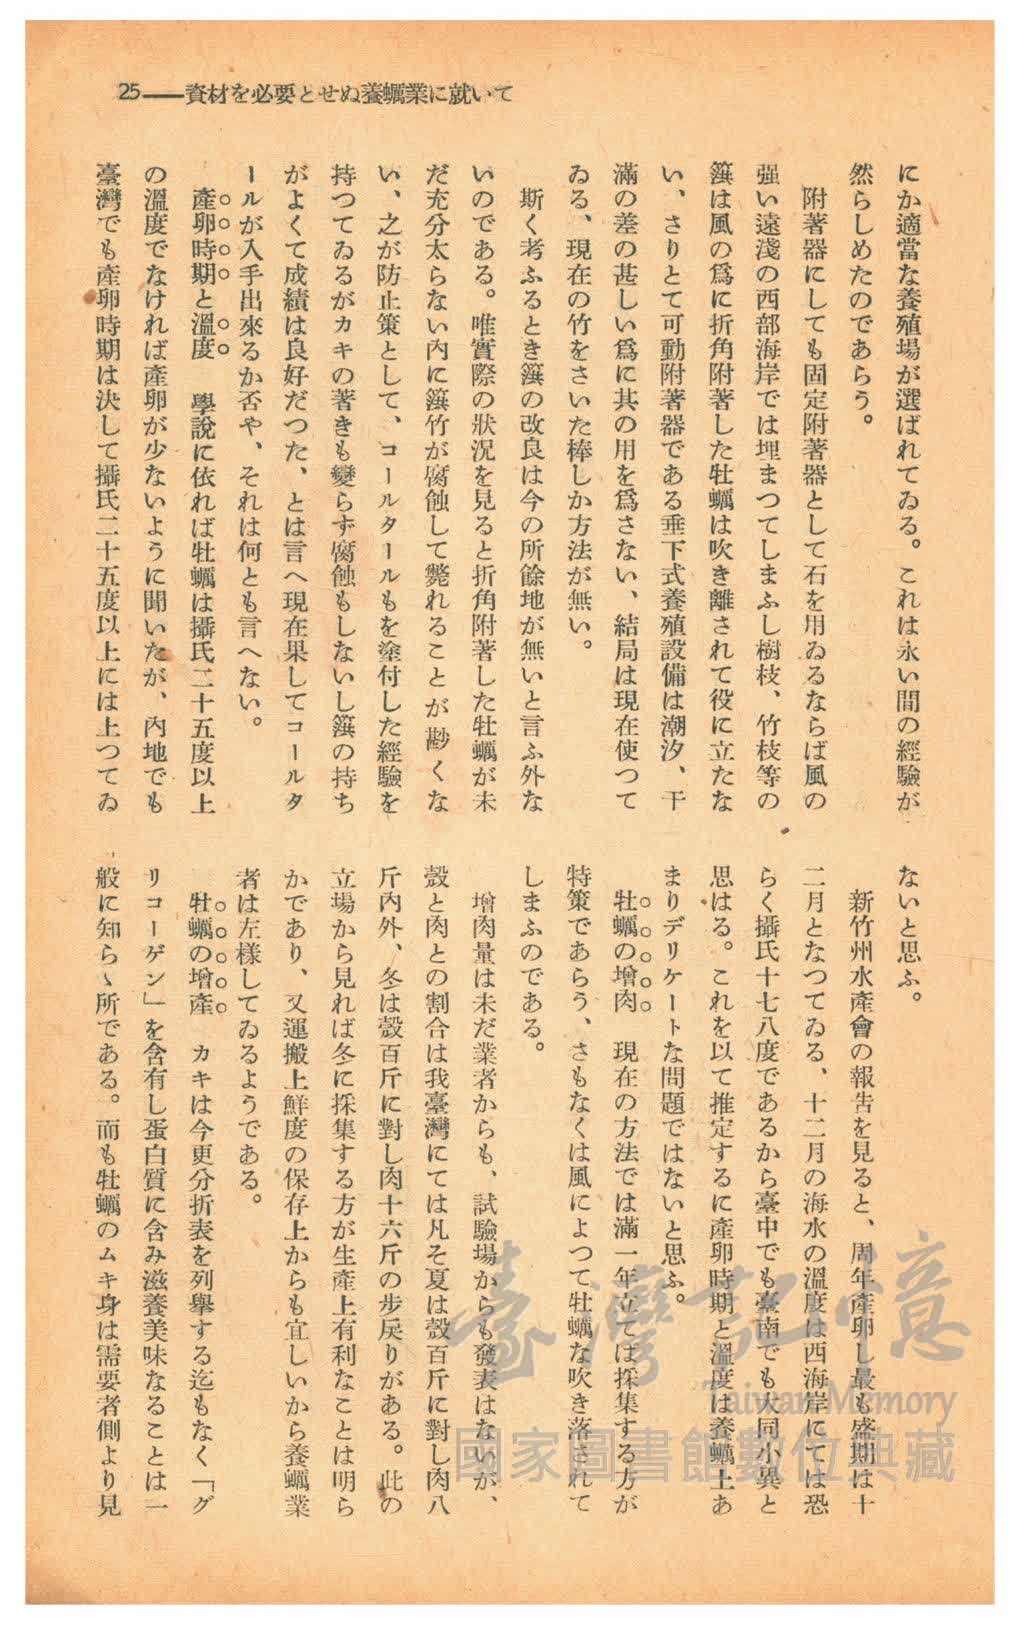 25——資材を必要とせぬ養蠣業に就いて
にか適當な養殖場が選ばれてゐる。これは永い間の經驗が
然らしめたのであらう。
附著器にしても固定附著器として石を用ゐるならば風の
强い遠淺の西部海岸では埋まつてしまふし樹枝、竹枝等の
簇は風の爲に折角附著した牡蠣は吹き離されて役に立たな
い、さりとて可動附著器である垂下式養殖設備は潮汐、干
滿の差の甚しい爲に其の用を爲さない、結局は現在使つて
ゐる、現在の竹をさいた棒しか方法が無い。
斯く考ふるとき簇の改良は今の所餘地が無いと言ふ外な
いのである。唯實際の狀況を見ると折角附著した牡蠣が未
だ充分太らない內に簇竹が腐蝕して斃れることが尠くな
い、之が防止策として、コールタールもを塗付した經驗を
持つてゐるがカキの著きも變らず腐蝕もしないし簇の持ち
がよくて成績は良好だつた、とは言へ現在果してコールタ
ールが入手出來るか否や、それは何とも言へない。
產卵時期と溫度 學說に依れば牡蠣は攝氏二十五度以上
の溫度でなければ產卵が少ないように聞いたが、內地でも
臺灣でも產卵時期は決して攝氏二十五度以上には上つてゐ
ないと思ふ。
新竹州水產會の報吿を見ると、周年產卵し最も盛期は十
二月となつてゐる、十二月の海水の溫度は西海岸にては恐
らく攝氏十七八度であるから臺中でも臺南でも大同小異と
思はる。これを以て推定するに產卵時期と溫度は養蠣上あ
まりデリケートな問題ではないと思ふ。
牡蠣の增肉 現在の方法では滿一年立てば採集する方が
特策であらう、さもなくは風によつて牡蠣な吹き落されて
しまふのである。
增肉量は未だ業者からも、試驗場からも發表はないが、
殼と肉との割合は我臺灣にては凡そ夏は殼百斤に對し肉八
斤內外、冬は殼百斤に對し肉十六斤の步戾りがある。此の
立場から見れば冬に採集する方が生產上有利なことは明ら
かであり、又運搬上鮮度の保存上からも宜しいから養蠣業
者は左樣してゐるようである。
牡蠣の增產 カキは今更分折表を列擧する迄もなく「グ
リコーゲン」を含有し蛋白質に含み滋養美味なることは一
般に知らゝ所である。而も牡蠣のムキ身は需要者側より見
臺灣記憶
Taiwan Memory
國家圖書館數位典藏